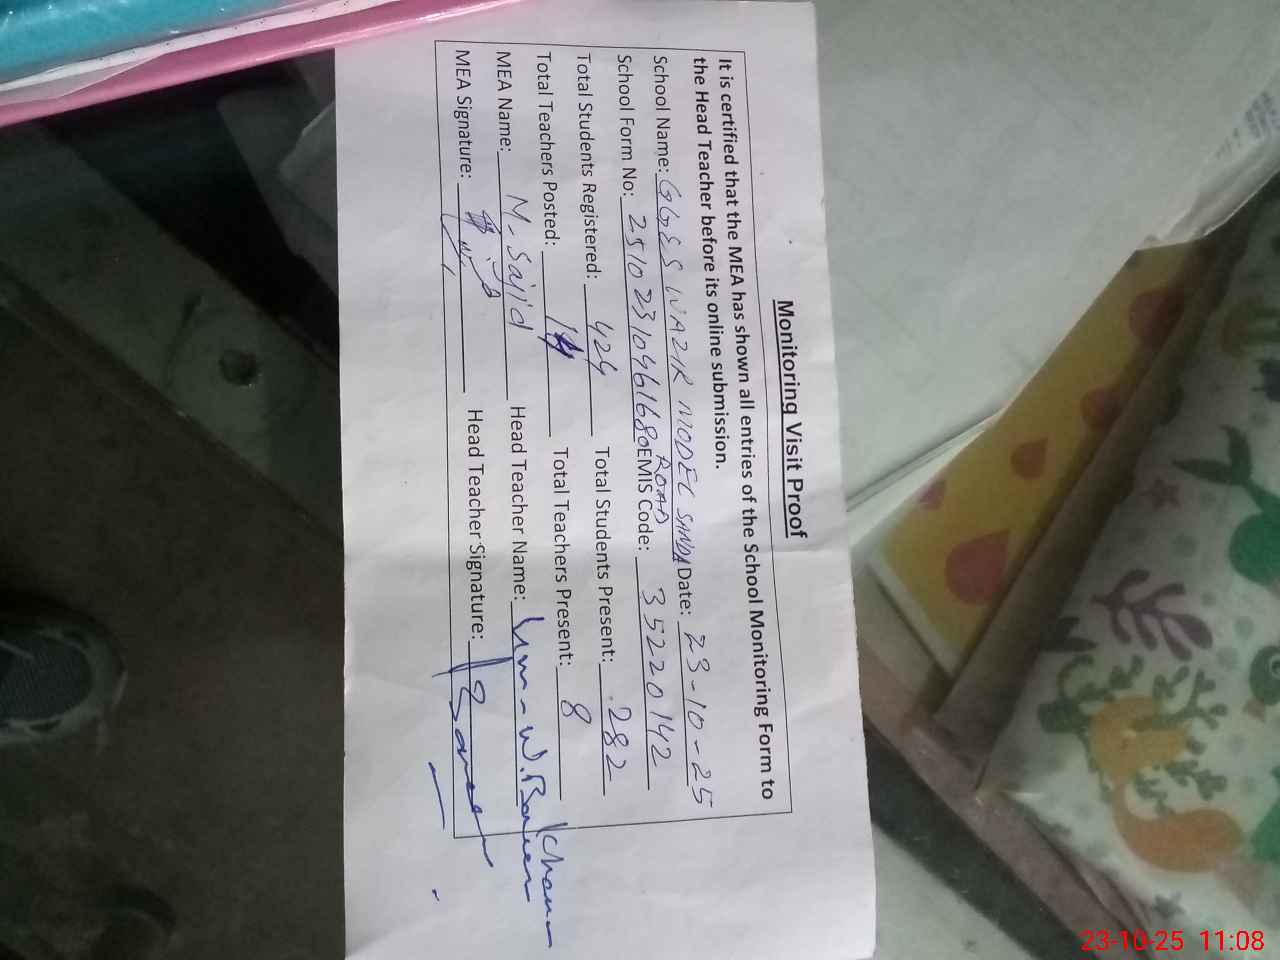 Monitoring Visit Proof
It is certified that the MEA has shown all entries of the School Monitoring Form to
the Head Teacher before its online submission.
School Name: GGES WAZIR MODEL SANDA Date: 23-10-25
ROAD
School Form No: 25102310461680 EMIS Code: 35220142
Total Students Registered: 424 Total Students Present: 282
Total Teachers Posted: Total Teachers Present: 8
MEA Name: M. Sajid Head Teacher Name:
MEA Signature: Head Teacher Signature:
23-10-25 11:08